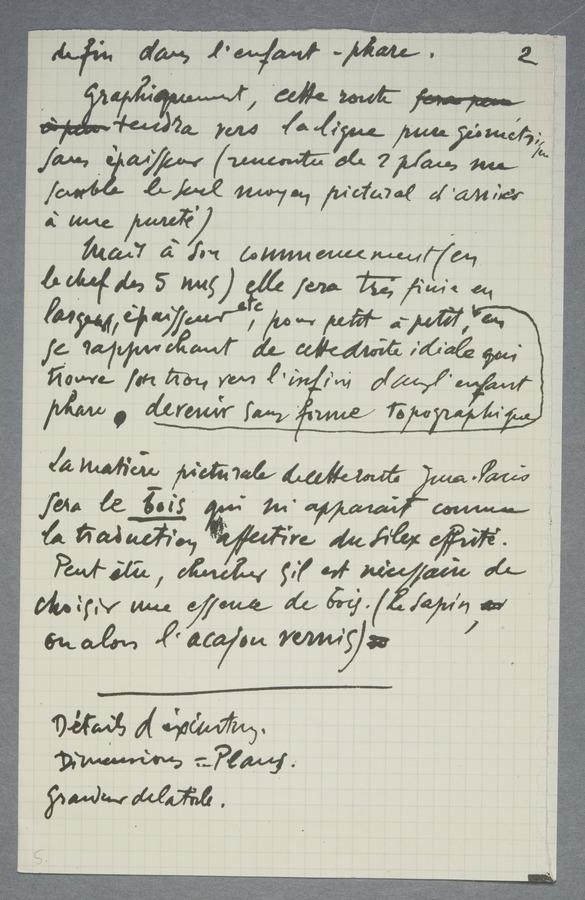 de fin dans l'enfant-phare. 2
Graphiquement, cette route
tendra vers la ligne pure géométrique
sans épaisseur (rencontre de 2 plans me
semble le seul moyen pictural d'arriver
à une pureté)
Mais à son commencement (en
le chef des 5 nus) elle sera très finie en
largeur, épaisseur etc, pour petit à petit, en
se rapprochant de cette droite idéale qui
trouve son trou vers l'infini dans l'enfant
phare. devenir sans forme topographique
La matière picturale de cette route Jura-Paris
sera le bois qui m'apparait comme
la traduction affective du silex effrité.
Peut être, chercher s'il est nécessaire de
choisir une essence de bois. (Le sapin,
ou alors l'acajou vernis)
Détails d'éxécution.
Dimensions = Plans.
Grandeur de la toile.
5.